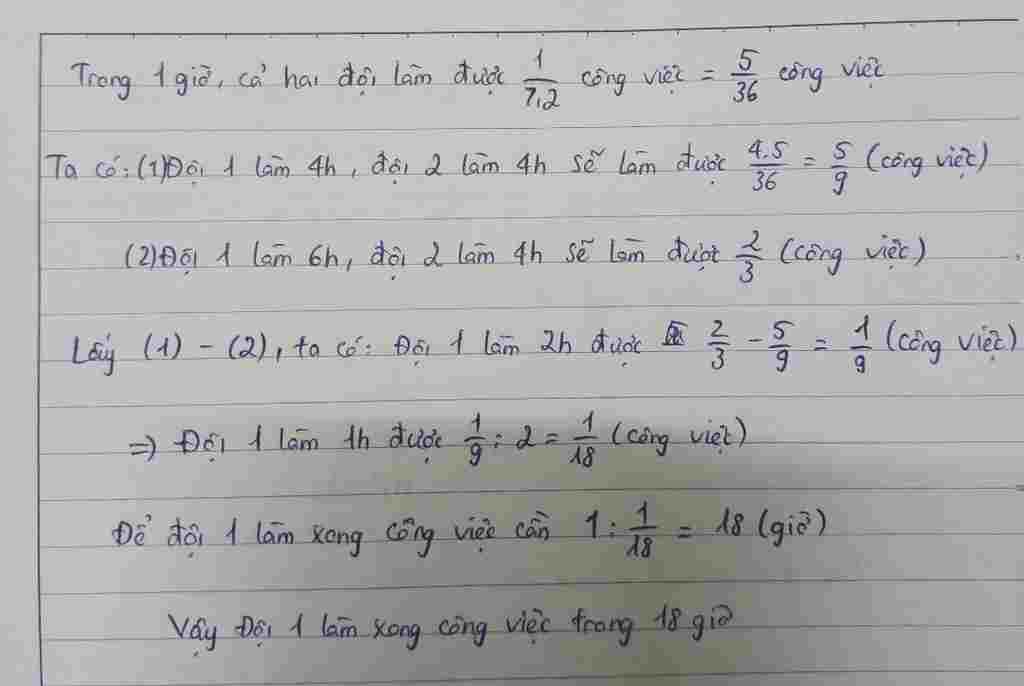 Trong 1 giờ, cả hai đội làm được 1/7,2 công việc = 5/36 công việc
Ta có: (1) Đội 1 làm 4h, đội 2 làm 4h sẽ làm được 4.5/36 = 5/9 (công việc)
(2) Đội 1 làm 6h, đội 2 làm 4h sẽ làm được 2/3 (công việc)
Lấy (1) - (2), ta có: Đội 1 làm 2h được 2/3 - 5/9 = 1/9 (công việc)
=> Đội 1 làm 1h được 1/9 : 2 = 1/18 (công việc)
Để đội 1 làm xong công việc cần 1 : 1/18 = 18 (giờ)
Vậy Đội 1 làm xong công việc trong 18 giờ